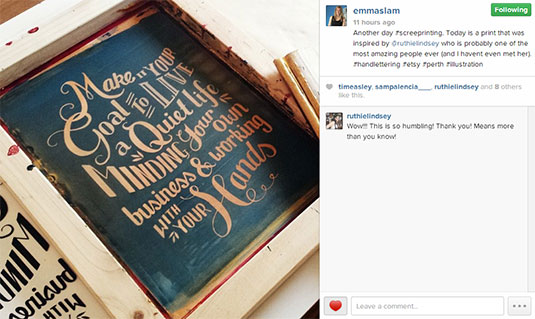 Make IT YOUR
Goal TO LIVE
a Quiet life
MINDING Your
own
business & working
WITH
YOUR Hands
MINDI
business
WITH
emmaslam
11 hours ago
Following
Another day #screeprinting. Today is a print that was
inspired by @ruthielindsey who is probably one of the
most amazing people ever (and I havent even met her).
#handlettering #etsy #perth #illustration
timeasley, sampalencia___, ruthielindsey and 8 others
like this.
ruthielindsey
Wow!!! This is so humbling! Thank you! Means more
than you know!
Leave a comment...